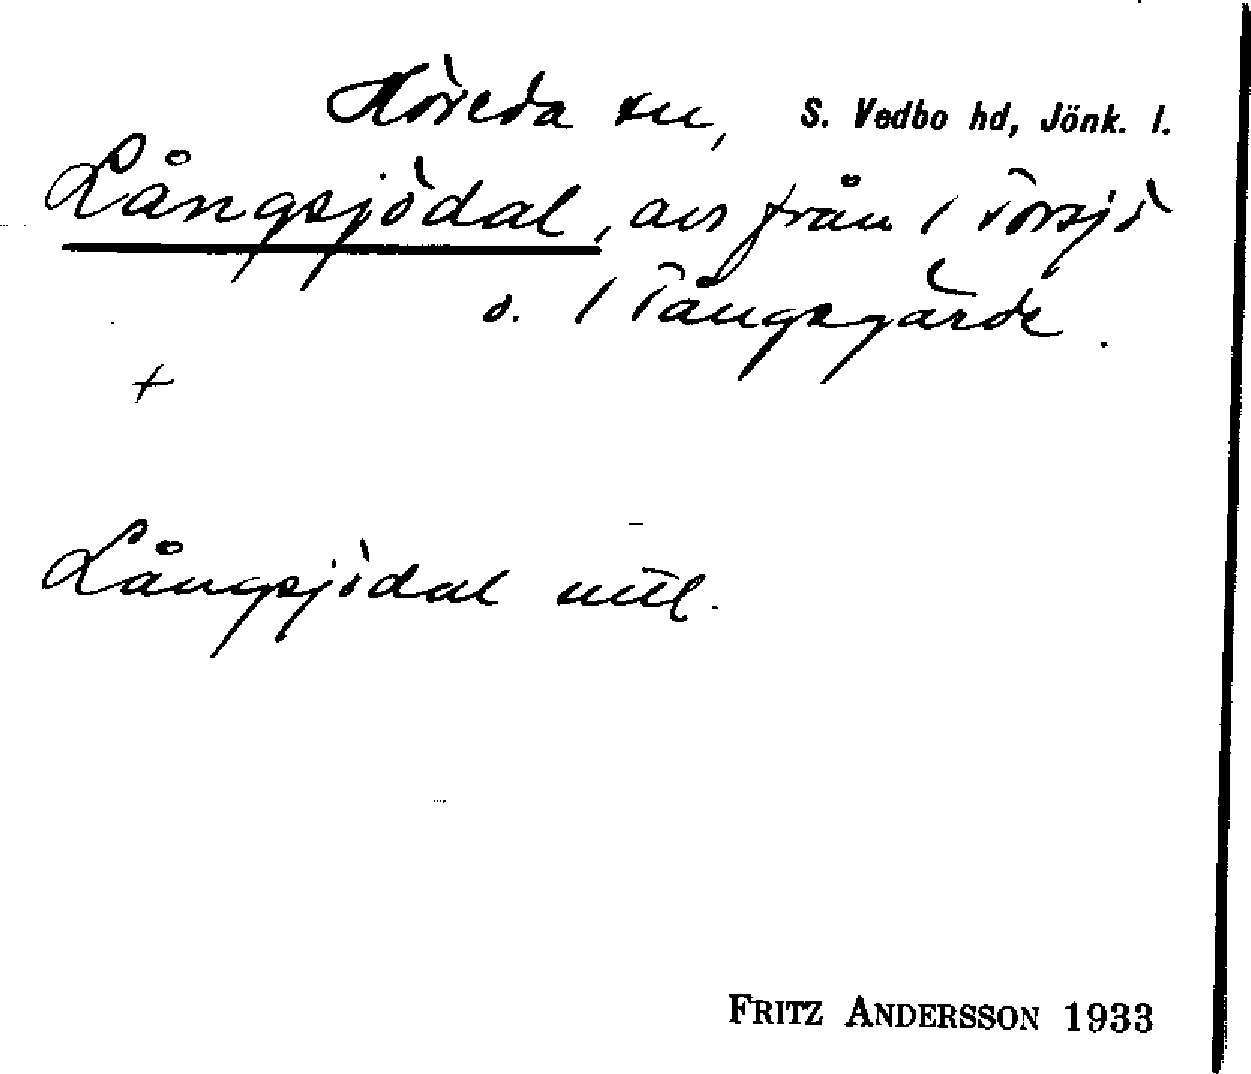 Höreda sn, S. Vedbo hd, Jönk. l.
Långsjödal, avs från 1 Torsjö
o. 1 Tångsgärde.
+
Långsjödal mtl.
FRITZ ANDERSSON 1933